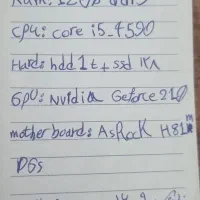 Ram: 12Gb ddr3
cpu: core i5_4590
Hard: hdd 1t + ssd
Gpu: Nvidia Geforce 210
motherboard: AsRock H81m
DGS